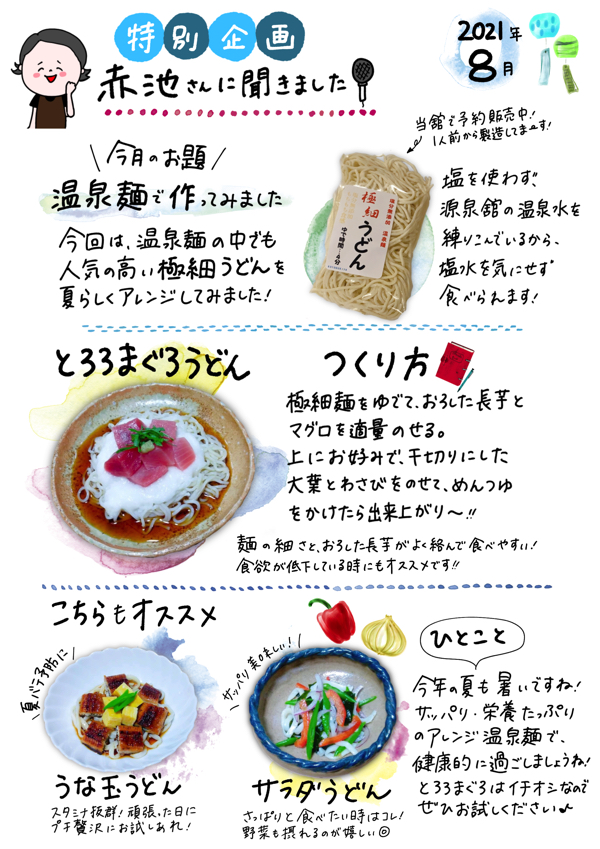 特別企画
2021年
8月
赤池さんに聞きました
当館で予約販売中!
1人前から製造してまーす!
今月のお題
温泉麺で作ってみました
今回は、温泉麺の中でも
人気の高い極細うどんを
夏らしくアレンジしてみました!
温泉麺
極細
うどん
ゆで時間…4分
塩を使わず、
源泉舘の温泉水を
練りこんでいるから、
塩水を気にせず
食べられます!
とろろまぐろうどん
つくり方
極細麺をゆでて、おろした長芋と
マグロを適量のせる。
上にお好みで、千切りにした
大葉とわさびをのせて、めんつゆ
をかけたら出来上がり〜!!
麺の細さと、おろした長芋がよく絡んで食べやすい!
食欲が低下している時にもオススメです!!
こちらもオススメ
夏バテ予防に
うな玉うどん
スタミナ抜群!頑張った日に
プチ贅沢にお試しあれ!
サッパリ美味しい!
サラダうどん
さっぱりと食べたい時はコレ!
野菜も摂れるのが嬉しい◎
ひとこと
今年の夏も暑いですね!
サッパリ・栄養たっぷり
のアレンジ温泉麺で、
健康的に過ごしましょうね!
とろろまぐろはイチオシなので
ぜひお試しください♪